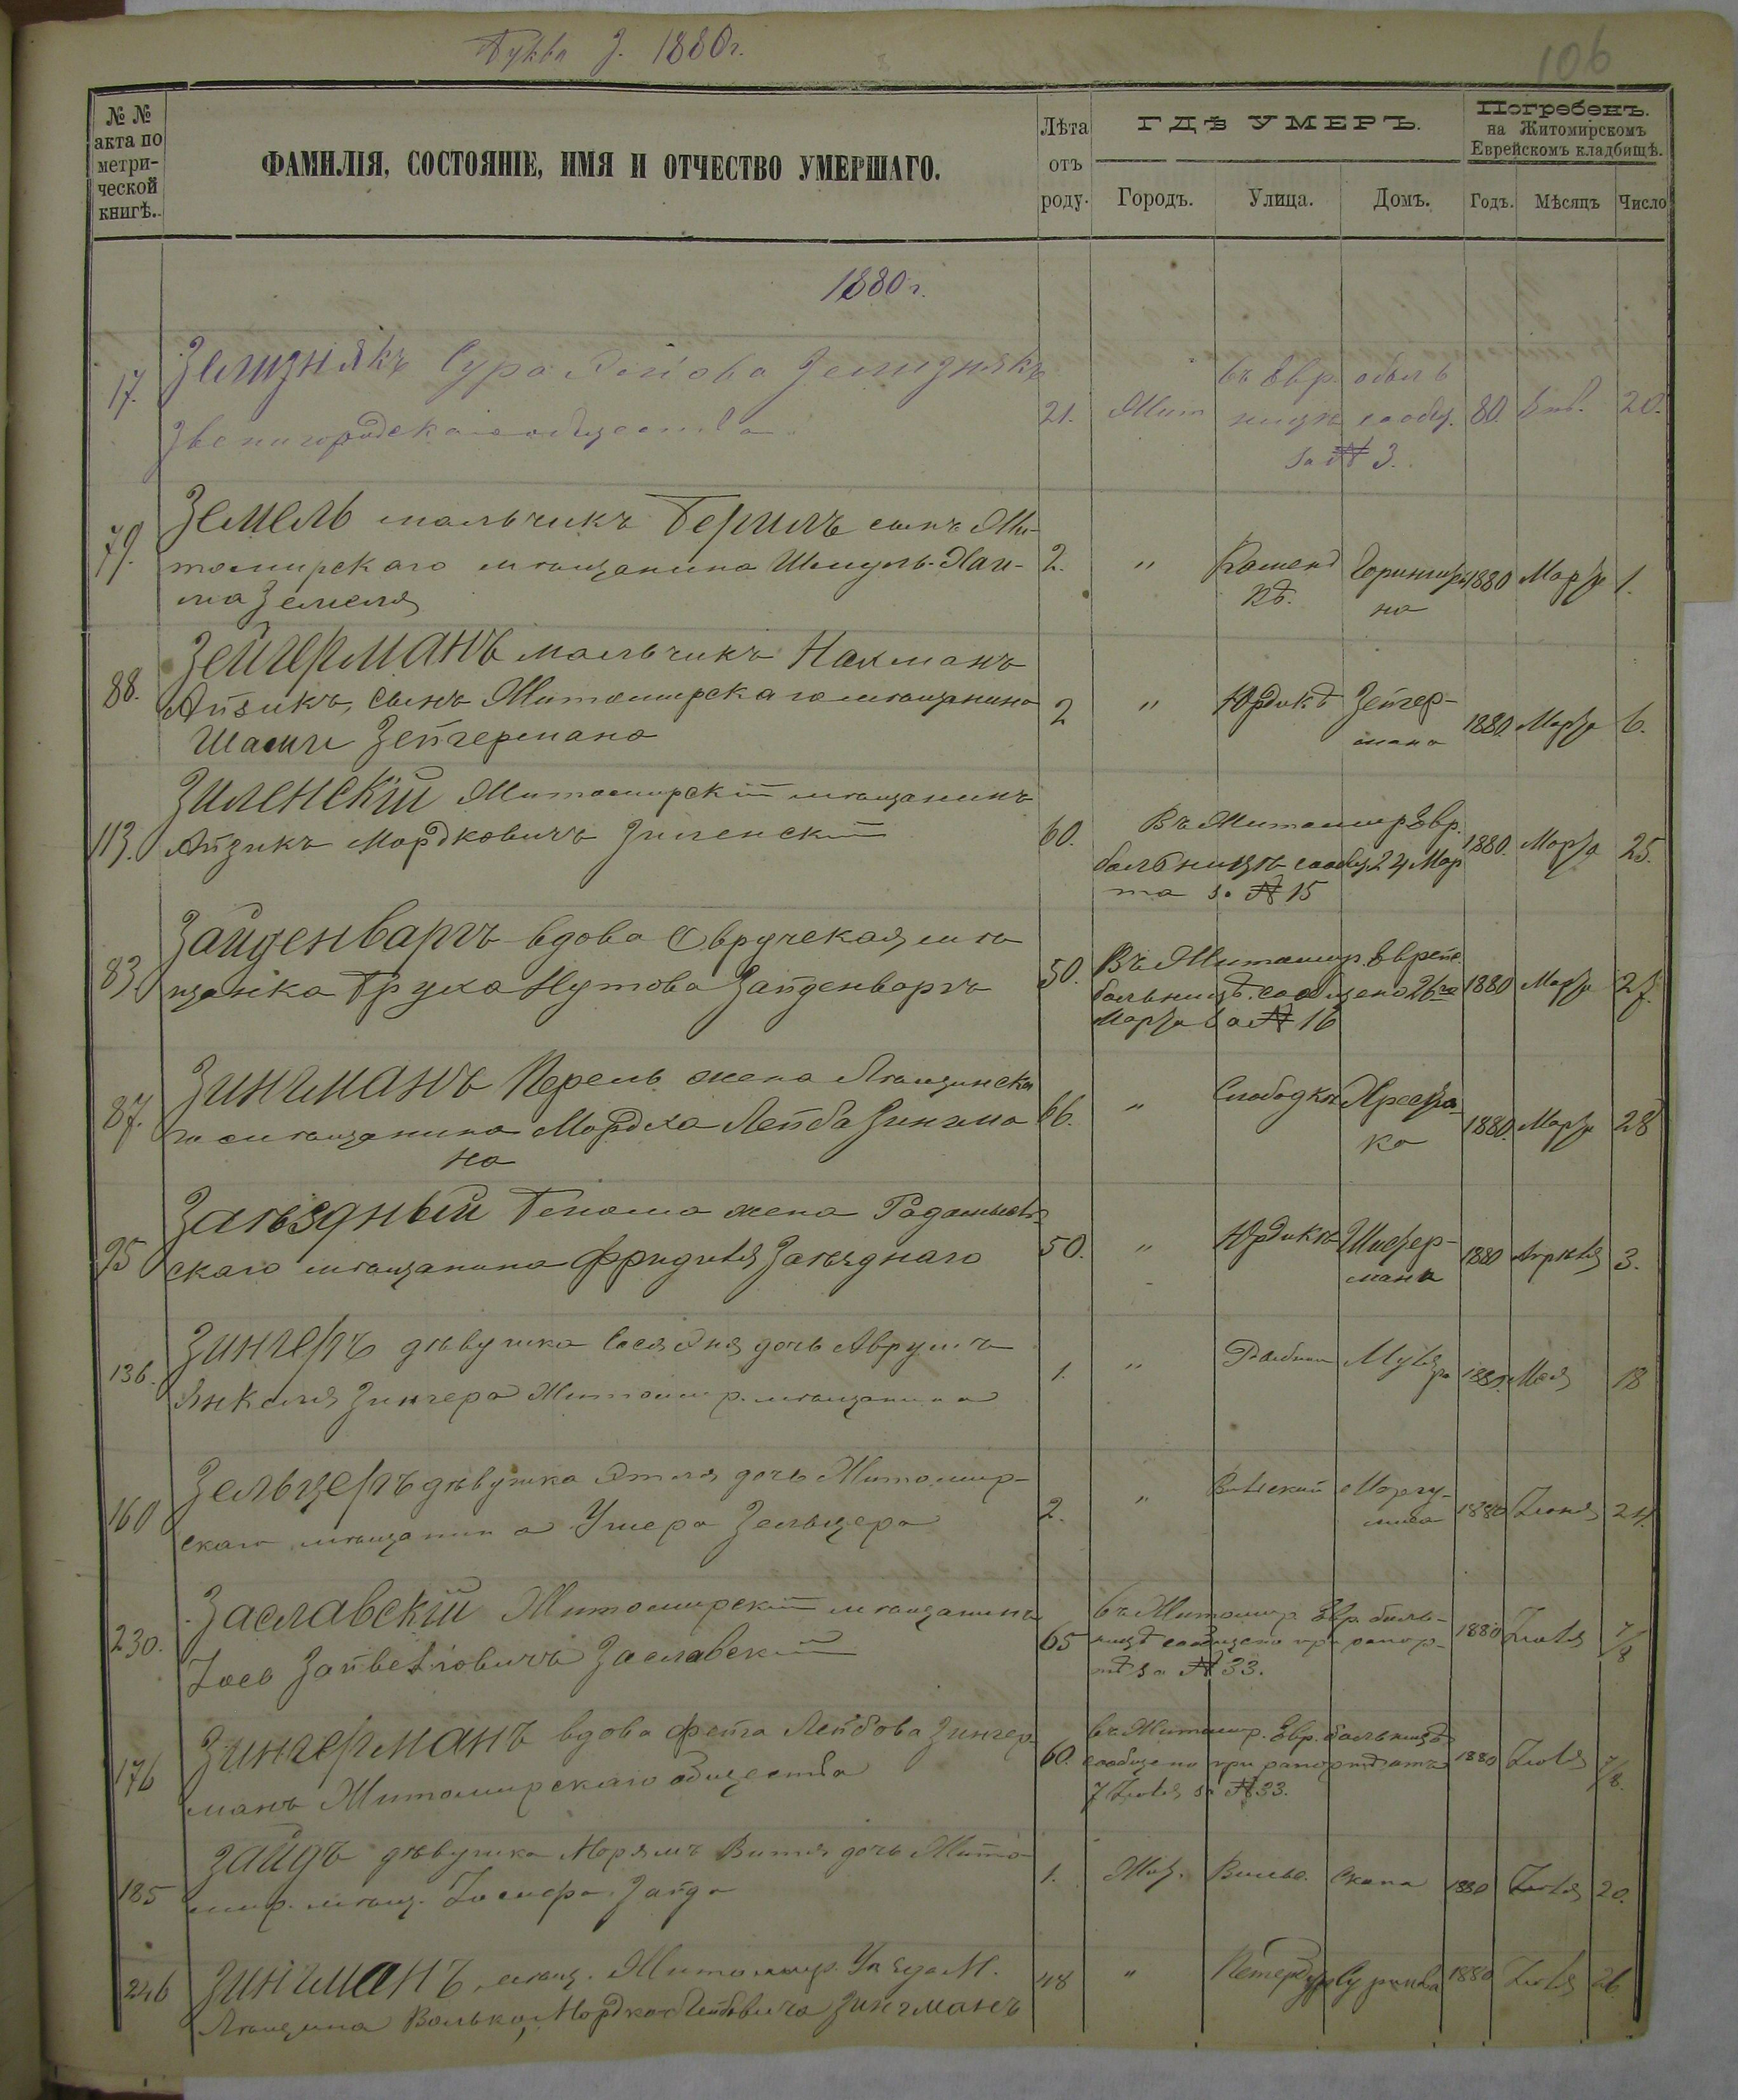 Буква З. 1880г.
106
№ №
акта по
метри-
ческой
книгѣ.
ФАМИЛІЯ, СОСТОЯНІЕ, ИМЯ И ОТЧЕСТВО УМЕРШАГО.
Лѣта
отъ
роду.
ГДѢ УМЕРЪ.
Городъ.
Улица.
Домъ.
Погребенъ.
на Житомирскомъ
Еврейскомъ кладбищѣ.
Годъ.
Мѣсяцъ
Число
1880 г.
17. Зелизнякъ Сура Лейбова Зелизнякъ
Звенигородскаго общества
21. Жит въ Евр. больницѣ сообщ. за № 3. 80. Янв. 20.
79. Земель мальчикъ Берилъ сынъ Жи-
томирскаго мѣщанина Шмуль-Хаи-
ма Земеля
2. " 1880 Марта 1.
88. Зейгерманъ мальчикъ Нахманъ
Айзикъ, сынъ Житомирскаго мѣщанина
Зейгермана
2 " Юрдикѣ Зейгер-
мана 1880. Марта 6.
113. Зиленскій Житомирскій мѣщанинъ
Айзикъ Мордковичъ Зиленскій
60. Въ Житомир Евр.
больницѣ сообщ. 24 Мар
та за № 15 1880. Марта 25.
83. Зайденваргъ вдова Овручская мѣ
щанка Бруха Нутова Зайденваргъ
50. Въ Житомир. Еврей.
больницѣ. сообщено 26го
Марта за № 16 1880 Марта 27.
87. Зингманъ Перель жена
го мѣщанина Мордха Лейба Зингма
на
66. " Слободкѣ 1880. Марта 28
95 Заѣздный жена Радомысль-
скаго мѣщанина Фридиля Заѣзднаго
50. " Юрдикѣ Шистер-
мана 1880 Апрѣля 3.
136. Зингеръ дѣвушка дочь Аврумъ
Янкеля Зингера Житомир. мѣщанина
1. " 1880. Мая 18
160 Зельцеръ дѣвушка Этля дочь Житомир-
скаго мѣщанина Ушера Зельцера
2. " Маргу-
лиса 1880 Іюня 24.
230. Заславскій Житомирскій мѣщанинъ
Іосъ Зайвелiовичъ Заславскій
65 въ Житомир Евр. боль-
ницѣ сообщено при рапор-
тѣ за № 33. 1880 Іюля 7/8
176 Зингерманъ вдова Фейга Лейбова Зингер-
манъ Житомирскаго общества
60. въ Житомир. Евр. больницѣ
сообщено при рапортѣ отъ
7 Іюля за № 33. 1880 Іюля 7/8.
185 Зайдъ дѣвушка Марямъ дочь Жито
мир. мѣщ. Зайда
1. Жит. 1880 Іюля 20.
246 Зингманъ, мѣщ. Житомир. Уѣзда М.
Волько, Мордко Лейбовича Зингманъ
48 " 1880 Іюля 26